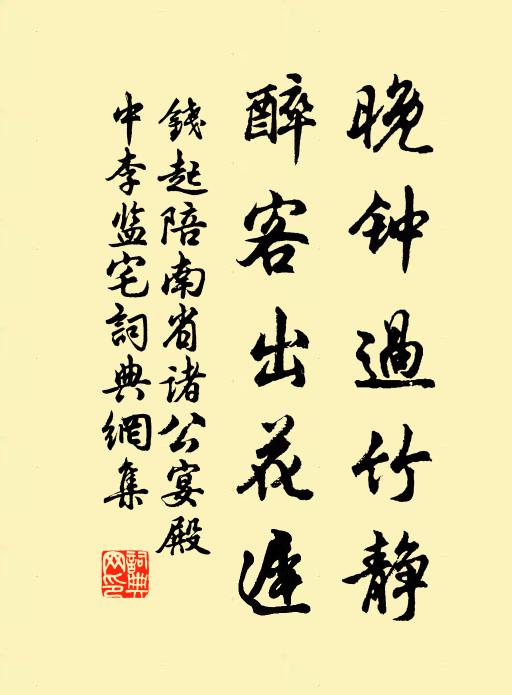 晚钟過竹静
醉客出花遲
錢起陪南省诸公宴殿
中李监宅詞典網集
詞典网印